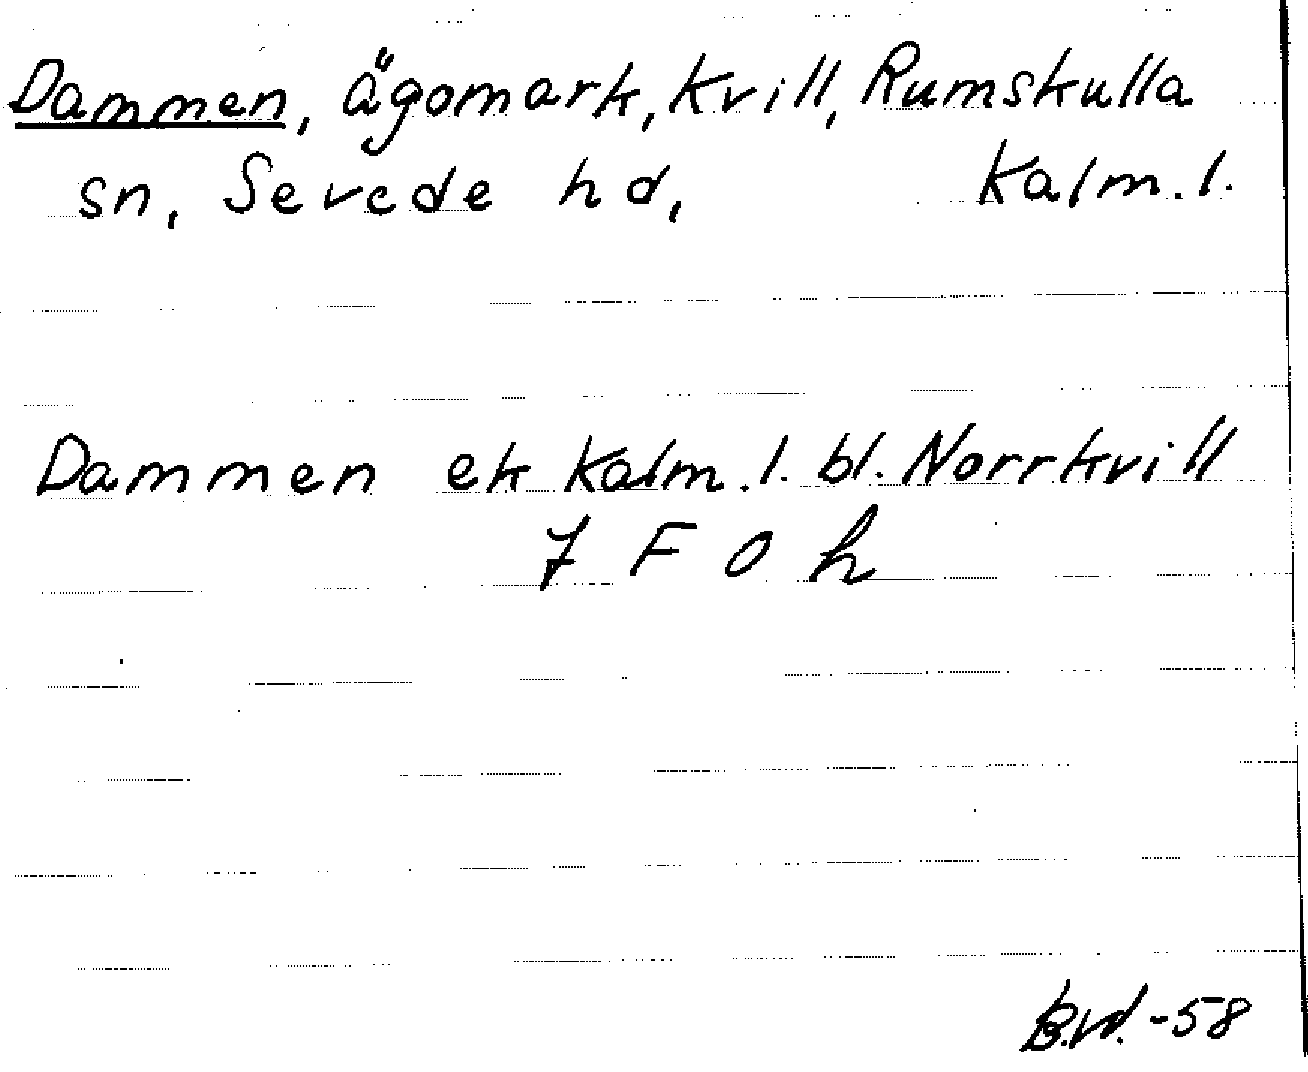 Dammen, ägomark, Kvill, Rumskulla
sn, Sevede hd, Kalm. l.
Dammen ek Kalm. l. bl. Norrkvill
7 F 0 h
-58